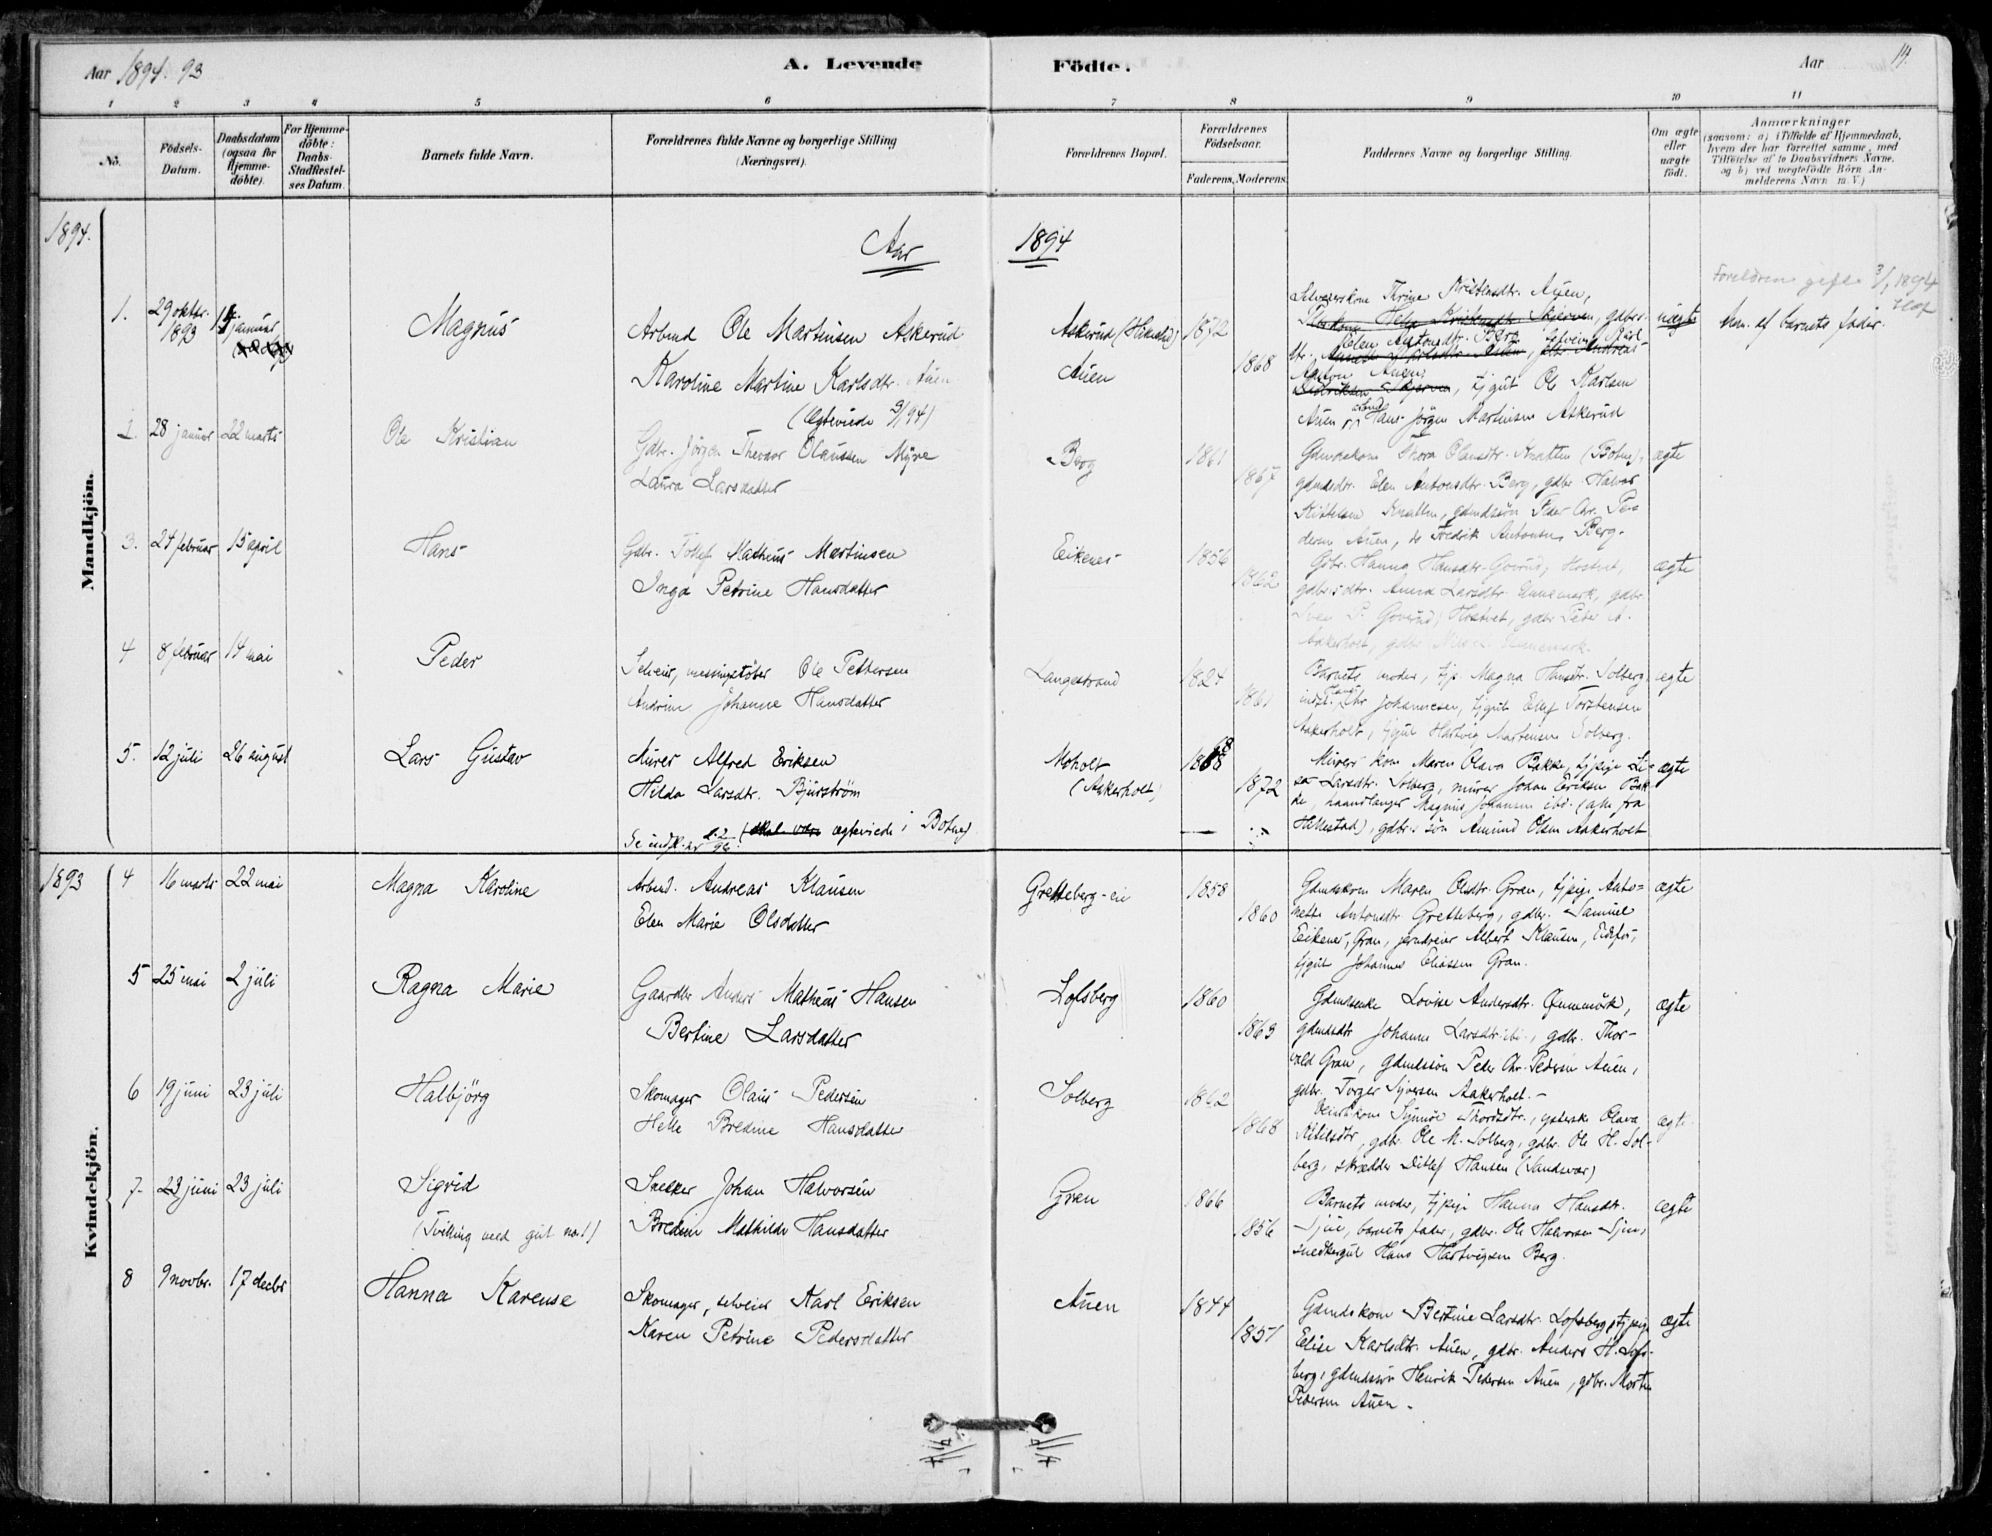 Aar 1894. 93
A. Levende
Födte.
Aar
14.
1 2 3 4 5 6 7 8 9 10 11
No.
Födsels-Datum.
Daabsdatum (ogsaa for hjemme-döbte).
For Hjemme-döbte: Daabs-Stadfæstel-ses Datum.
Barnets fulde Navn.
Forældrenes fulde Navne og borgerlige Stilling (Næringsvei).
Forældrenes Bopæl.
Forældrenes Födselsaar.
Faderens. Moderens.
Faddernes Navne og borgerlige Stilling.
Om ægte eller uægte födt.
Anmærkninger
(saasom: a) i Tilfælde af Hjemmedaab, hvem der har forrettet samme, med Tilföielse af to Daabsvidners Navne, og b) ved uægtefödte Börn Anmelderens Navn m. V.)
1894.
Aar 1894
Mandkjön.
1. 29 oktbr. 1893 januar
Magnus
Arbeid Ole Martinsen Askerud
Karoline Martine Karlsdtr. Auen
(Ægteviede 3/1 94)
Askerud (Hillestad)
Auen
1872
1868
Selveierskone Thrine Kristensdtr. Auen,
Elen Antonsdtr. Berg
Anton Auen, tjgut Ole Karlsen
Auen, arbeid Hans Jörgen Martinsen Askerud
uægte
Foreldren gifte 3/1 1894
Anm. af barnets fader.
2. 28 januar 22 marts
Ole Kristian
Gdbr. Jörgen Thevdor Olaussen Myre
Laura Larsdatter
Berg
1861
1867
Gdmdskone Thora Olausdtr. Knatten (Botne),
gdmdsdtr. Elen Antonsdtr. Berg, gdbr. Halvor
Kittelsen Knatten, gdmdssön Peder Chr. Pe-
dersen Auen, do Fredrik Antonsen Berg.
ægte
3. 24 februar 15 april
Hans
Gdbr. Tollef Matheus Martinsen
Inga Petrine Hansdatter
Eikenes
1856
1862
Gdbr. Hanna Hansdtr. Goverud, Hostvet,
gdbrsdtr. Anna Larsdtr. Ennemark, gdbr.
Iver P. Goverud, Hostvet, gdbr. Peder A.
Aakerholt, gdbr. Nils L. Ennemark.
ægte
4 8 februar 14 mai
Peder
Selveier, messingstöber Ole Pettersen
Andrine Johanne Hansdatter
Langestrand
1824
1861
Barnets moder, tjp. Magna Hansdtr. Solberg,
indst. Chr. Johannesen, tjgut Ellef Torstensen
Aakerholt, tjgut Hartvig Martinsen Solberg.
ægte
5. 12 juli 26 august
Lars Gustav
Murer Alfred Eriksen
Hilda Larsdtr. Bjurström
Se indk. nr. 2/96. (skal være ægteviede i Botne)
Moholt
(Aakerholt)
1868
1872
Murers kone Maren Olava Bakke, tjpige Li-
sa Larsdtr. Solberg, murer Johan Eriksen Bak-
ke, haandlanger Magnus Johansen ibd. (alle fra
Hillestad), gdbr.s sön Amund Olsen Aakerholt
ægte
1893
Kvindekjön.
4 16 marts 22 mai
Magna Karoline
Arbeid. Andreas Klausen
Elen Marie Olsdatter
Gretteberg-eie
1858
1860
Gdmdskone Maren Olsdtr. Gran, tjpige Anto-
nette Antonsdtr. Gretteberg, gdbr. Samuel
Eikenes, Gran, jerndreier Albert Klausen, Eidsfos,
tjgut Johannes Eliassen Gran.
ægte
5 25 mai 2 juli
Ragna Marie
Gaardbr. Anders Matheus Hansen
Bertine Larsdatter
Lofsberg
1860
1863
Gdmdsenke Lovise Andersdtr. Ennemark,
gdmdsdtr. Johanne Larsdtr. ibd., gdbr. Thor-
vald Gran, gdmdssön Peder Chr. Pedersen Auen,
gdbr. Torger Syversen Aakerholt.
ægte
6 19 juni 23 juli
Halbjörg
Skomager Olaus Pedersen
Helle Bredine Hansdatter
Solberg
1862
1868
Synnöve Thordsdtr., Olava
Kittelsdtr., gdbr. Ole M. Solberg, gdbr. Ole H. Sol-
berg, skrædder Ditlef Hansen (Sandsvær)
ægte
7. 23 juni 23 juli
Sigvid
(Tvilling med gut no. 1)
Snekker Johan Halvorsen
Bredine Mathilde Hansdatter
Gran
1866
1856
Barnets moder, tjpige Hanna Hansdtr.
Sjue, barnets fader, gdbr. Ole Halvorsen Sjue,
snedkergut Hans Hartvigsen Berg.
ægte
8 9 novbr. 17 decbr
Hanna Karense
Skomager, selveier Karl Eriksen
Karen Petrine Pedersdatter
Auen
1844
1851
Gdmdskone Bertine Larsdtr. Lofsberg, tjpige
Elise Karlsdtr. Auen, gdbr. Anders H. Lofs-
berg, gdmdssön Henrik Pedersen Auen, gdbr. Morten
Pedersen Auen.
ægte